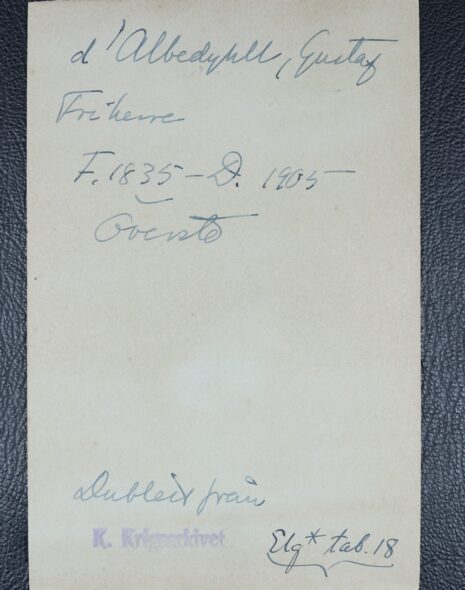 d'Albedyhll, Gustaf
Friherre
F. 1835 – D. 1905
Överste
Dublett från
K. Krigsarkivet
Elg* tab. 18